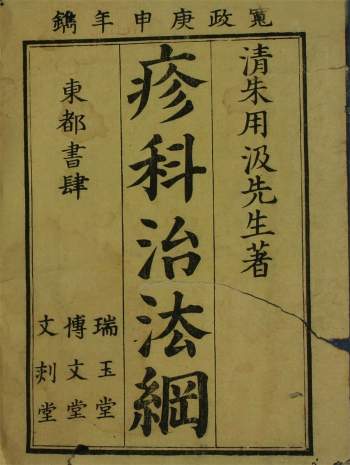 寬政庚申年鐫
清朱用汲先生著
疹科治法綱
東都書肆
瑞玉堂
博文堂
文刻堂